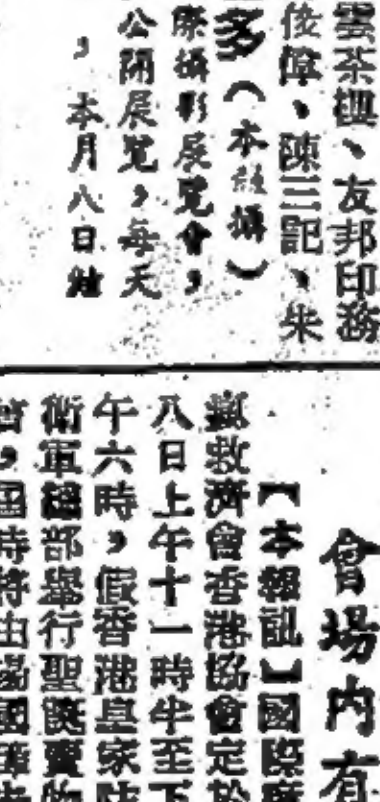 雲茶樓、友邦印務
俊偉、陳三記、朱
多（本報攝）
際攝影展覽會，
公開展覽，每天
，本月八日
會場內有
【本報訊】國際
救濟會香港協會定於
八日上午十一時半至下
午六時，假香港皇家陸
衛軍總部舉行聖誕賣物
會，屆時將由